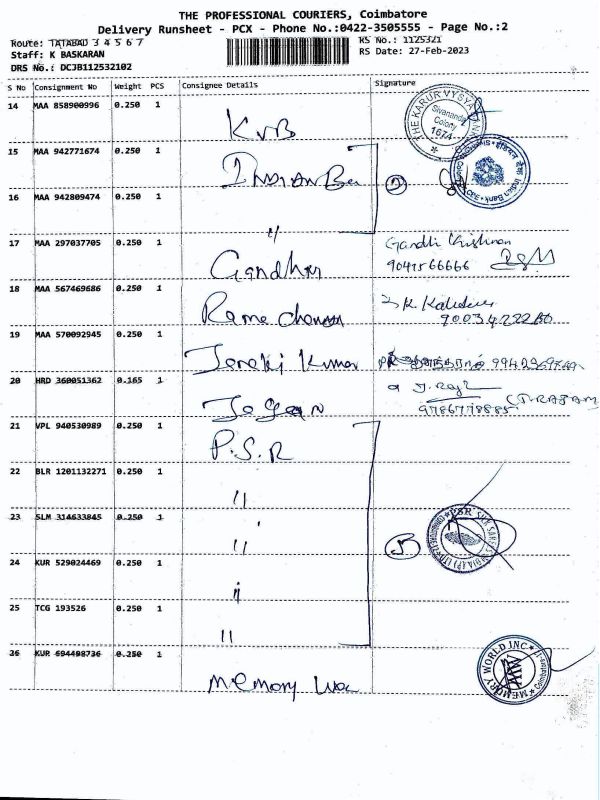 THE PROFESSIONAL COURIERS, Coimbatore
Delivery Runsheet - PCX - Phone No.:0422-3505555 - Page No.:2
Route: TATABAD 3 4 5 6 7
RS No.: 1125321
Staff: K BASKARAN
RS Date: 27-Feb-2023
DRS No.: DCJB112532102
S No Consignment No Weight PCS Consignee Details Signature
14 MAA 858900996 0.250 1 KVB
THE KARUR VYSYA BANK
Sivananda Colony
1674
15 MAA 942771674 0.250 1 INDIAN Ban
2
Indian Bank
16 MAA 942809474 0.250 1 "
17 MAA 297037705 0.250 1 Gandhi
Gandhi Krishnan
9047566666
18 MAA 567469686 0.250 1 Rama
19 MAA 570092945 0.250 1 Janaki Kumar
20 HRD 360051362 0.165 1 Jagan
J. Raj
9786778885
(J.RAJAM
21 VPL 940530989 0.250 1 P.S.R
22 BLR 1201132271 0.250 1 "
23 SLM 314633845 0.250 1 "
5
PSR SILK SAREES INDIA (P) LTD
24 KUR 529024469 0.250 1 "
25 TCG 193526 0.250 1 "
26 KUR 694498736 0.250 1 Memory
MEMORY WORLD INC
MW